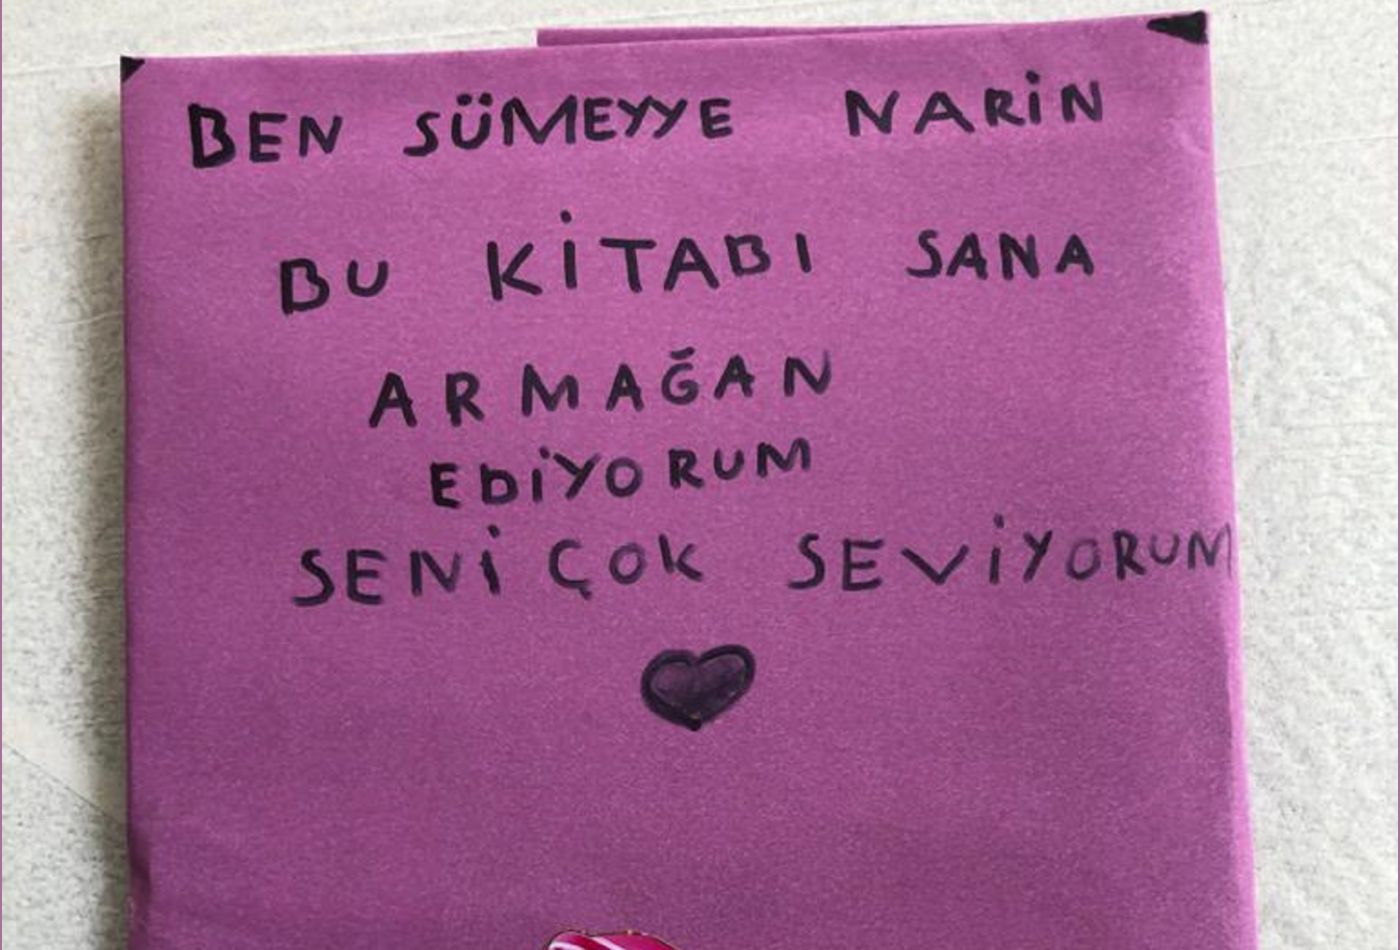 BEN SÜMEYYE NARİN
BU KİTABI SANA
ARMAĞAN
EDİYORUM
SENİ ÇOK SEVİYORUM